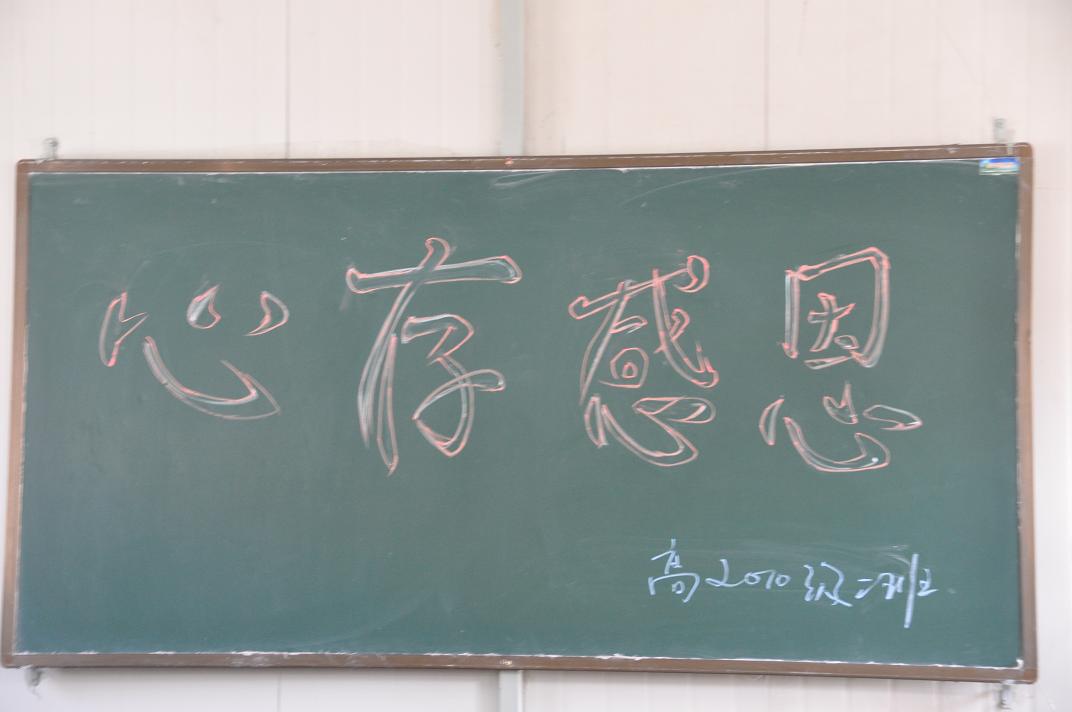 心存感恩
高2010级二班